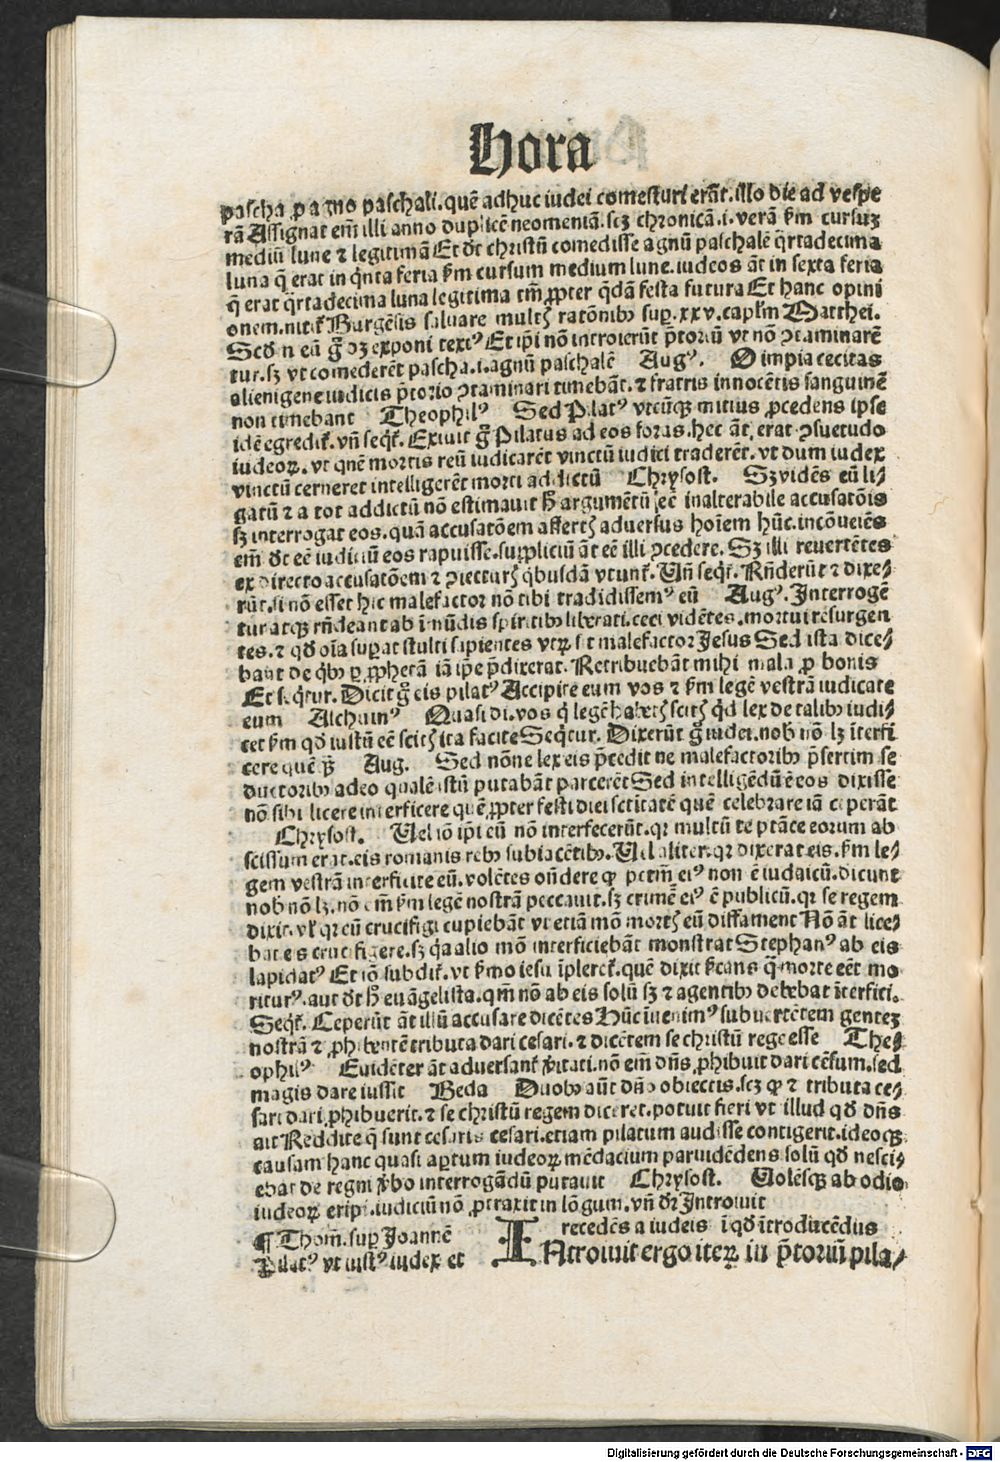 Hora
pascha ꝓ agno paschali.quē adhuc iudei comesturi erāt.illo die ad vespe
rā Assignat em̄ illi anno duplicē neomeniā.scꝫ chronicā.i.verā ẜm cursuꝫ
mediū lune ⁊ legitimā Et dt̄ christū comedisse agnū paschalē q̄rtadecima
luna q̄ erat in q̄nta feria ẜm cursum medium lune.iudeos āt in sexta feria
q̄ erat q̄rtadecima luna legitima tm̄ ꝓpter q̄dā festa futura Et hanc opini
onem.nitit᷑ Burgēsis saluare multꝭ ratōnibꝰ suꝑ.xxv.capl'm Matthei.
Scd̄ n eū g̊ oꝫ exponi textꝰ Et ip̄i nō introierūt p̄toriū vt nō ↄtaminarē
tur.sꝫ vt comederēt pascha.i.agnū paschalē Augꝰ. O impia cecitas
alienigene iudicis p̄torio ↄtaminari timebāt.⁊ fratris innocētis sanguinē
non timebant Theophilꝰ Sed Pilatꝰ vtcūqꝫ mitius ꝓcedens ipse
idē egredit᷑.vn̄ seqt᷑.Exiuit g̊ Pilatus ad eos foras.hec āt erat ↄsuetudo
iudeoꝝ.vt quē mortis reū iudicarēt vinctū iudici traderēt.vt dum iudex
vinctū cerneret intelligerēt morti addictū Chrysost. Sꝫ vidēs eū li⸗
gatū ⁊ a tot addictū nō estimauit h̄ argumētū eē inalterabile accusatōis
sꝫ interrogat eos.quā accusatōem affertꝭ aduersus hoīem hūc.incōueiēs
em̄ dt̄ eē iudiciū eos rapuisse.suppliciū āt eē illi ↄcedere.Sꝫ illi reuertētes
ex directo accusatōem ⁊ ↄiecturꝭ q̄busdā vtunt᷑.Vn̄ seqt᷑.Rn̄derūt ⁊ dixe⸗
rūt.si nō esset hic malefactor nō tibi tradidissemꝰ eū Augꝰ.Interrogē
tur atqꝫ rn̄deant ab īmūdis spiritibꝰ liberati.ceci vidētes.mortui resurgen
tes.⁊ qd̄ oīa suꝑat stulti sapientes vtꝝ sit malefactor Jesus Sed ista dice⸗
bant de q̄bꝰ ꝑ ꝓphetā iā ip̄e p̄dixerat.Retribuebāt mihi mala ꝓ bonis
Et seq̄tur.Dicit g̊ eis pilatꝰ Accipite eum vos ⁊ ẜm legē vestrā iudicate
eum Alchuinꝰ Quasi di.vos q̄ legē habetꝭ scitꝭ q̄d lex de talibꝰ iudi⸗
cet ẜm qd̄ iustū eē scitꝭ ita facite Seq̄tur.Dixerūt g̊ iudei.nob̄ nō lꝫ īterfi
cere quē qꝫ Aug. Sed nōne lex eis p̄cedit ne malefactoribꝰ p̄sertim se
ductoribꝰ adeo qualē istū putabāt parcerēt Sed intelligēdū ē eos dixisse
nō sibi licere interficere quē ꝓpter festi diei sctītatē quē celebrare iā ceperāt
Chrysost. Uel iō ip̄i eū nō interfecerūt.qꝛ multū te ptāce eorum ab
scissum erat.eis romanis rebꝰ subiacētibꝰ.Uel aliter.qꝛ dixerat eis.ẜm le⸗
gem vestrā interficite eū.volētes on̄dere ꝙ pctm̄ eiꝰ non ē iudaicū.dicunt
nob̄ nō lꝫ.nō em̄ ẜm legē nostrā peccauit.sꝫ crimē eiꝰ ē publicū.qꝛ se regem
dixit.vl' qꝛ eū crucifigi cupiebāt vt etiā mō mortꝭ eū diffament Nō āt lice⸗
bat eis crucifigere.sꝫ q̄a alio mō interficiebāt monstrat Stephanꝰ ab eis
lapidatꝰ Et iō subdit᷑.vt ẜmo iesu īpleret᷑.quē dixit ẜcans q̄ morte eēt mo
riturꝰ.aut dt̄ h̄ euāgelista.qm̄ nō ab eis solū sꝫ ⁊ a gentibꝰ debebat īterfici.
Seqt᷑.Ceperūt āt illū accusare dicētes Hūc īuenimꝰ subuertētem genteꝫ
nostrā ⁊ ꝓhibentē tributa dari cesari.⁊ dicētem se christū regē esse The⸗
ophilꝰ Euidēter āt aduersant᷑ v̄itati.nō em̄ dn̄s ꝓhibuit dari cēsum.sed
magis dare iussit Beda Duobꝰ aūt dn̄o obiectis.scꝫ ꝙ ⁊ tributa ce⸗
sari dari ꝓhibuerit.⁊ se christū regem diceret.potuit fieri vt illud qd̄ dn̄s
ait Reddite q̄ sunt cesaris cesari.etiam pilatum audisse contigerit.ideoqꝫ
causam hanc quasi aꝑtum iudeoꝝ mēdacium paruidēdens solū qd̄ nesci⸗
ebat de regni v̄bo interrogādū putauit Chrysost. Uolēsqꝫ ab odio
iudeoꝝ eripi.iudiciū nō ꝓtraxit in lōgum.vn̄ dr̄ Introiuit
¶ Thom̄.suꝑ Joannē
Pilatꝰ vt iustꝰ iudex et
recedēs a iudeis īqd̄ ītroducēdus
INtroiuit ergo iteꝝ in p̄toriū pila⸗
Digitalisierung gefördert durch die Deutsche Forschungsgemeinschaft - DFG